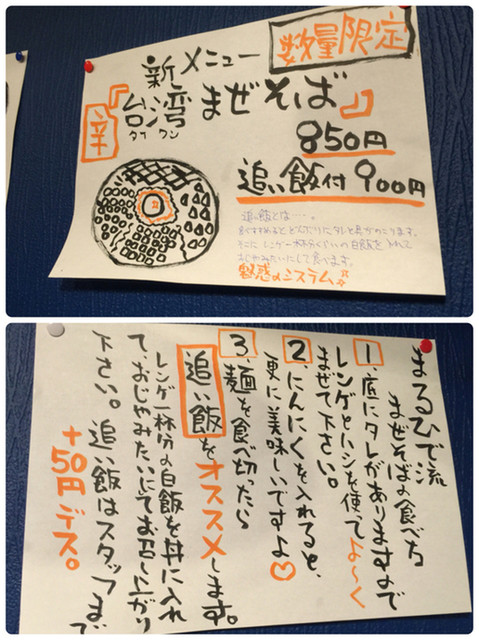 数量限定
新メニュー
辛『台湾まぜそば』
タイワン
850円
追い飯付 900円
追い飯とは…。
食べすすめるとどんぶりにタレと具がのこります。
そこに レンゲ一杯分くらいの白飯を入れて
おじやみたいにして食べます。
魅惑のシステム
まるひで流
まぜそばの食べ方
1、底にタレがありますので
レンゲとハシを使ってよ〜く
まぜて下さい。
2、にんにくを入れると、
更に美味しいですよ♡
3、麺を食べ切ったら
追い飯をオススメします。
レンゲ一杯分の白飯を丼に入れ
て、おじやみたいにてお召し上がり
下さい。追い飯はスタッフまで
+50円デス。